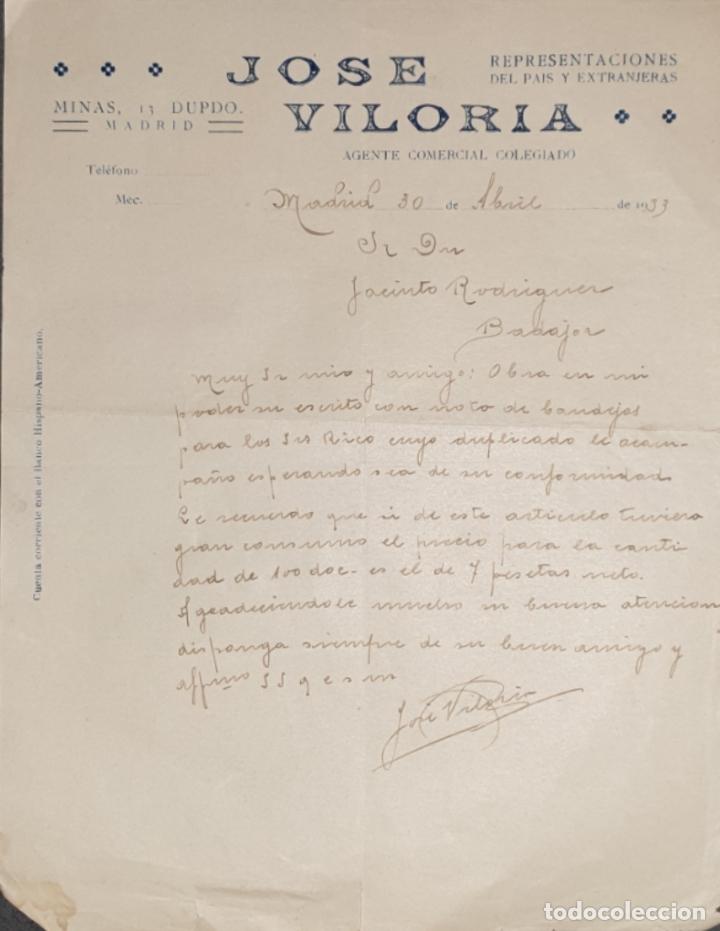 JOSE
VILORIA
REPRESENTACIONES
DEL PAIS Y EXTRANJERAS
MINAS, 13 DUPDO.
MADRID
AGENTE COMERCIAL COLEGIADO
Teléfono
Mec.
Madrid 30 de Abril de 1933
Sr Dn
Jacinto Rodriguez
Badajoz
Muy Sr mio y amigo: Obra en mi
poder su escrito con nota de bandejas
para los Srs Rico cuyo duplicado le acom-
paño esperando sea de su conformidad
Le recuerdo que si de este articulo tuviera
gran consumo el precio para la canti
dad de 100 doc. es el de 7 pesetas neto.
Agradeciendole mucho su buena atencion
disponga siempre de su buen amigo y
affmo S S q e s m
José Viloria
Cuenta corriente con el Banco Hispano-Americano.
todocoleccion